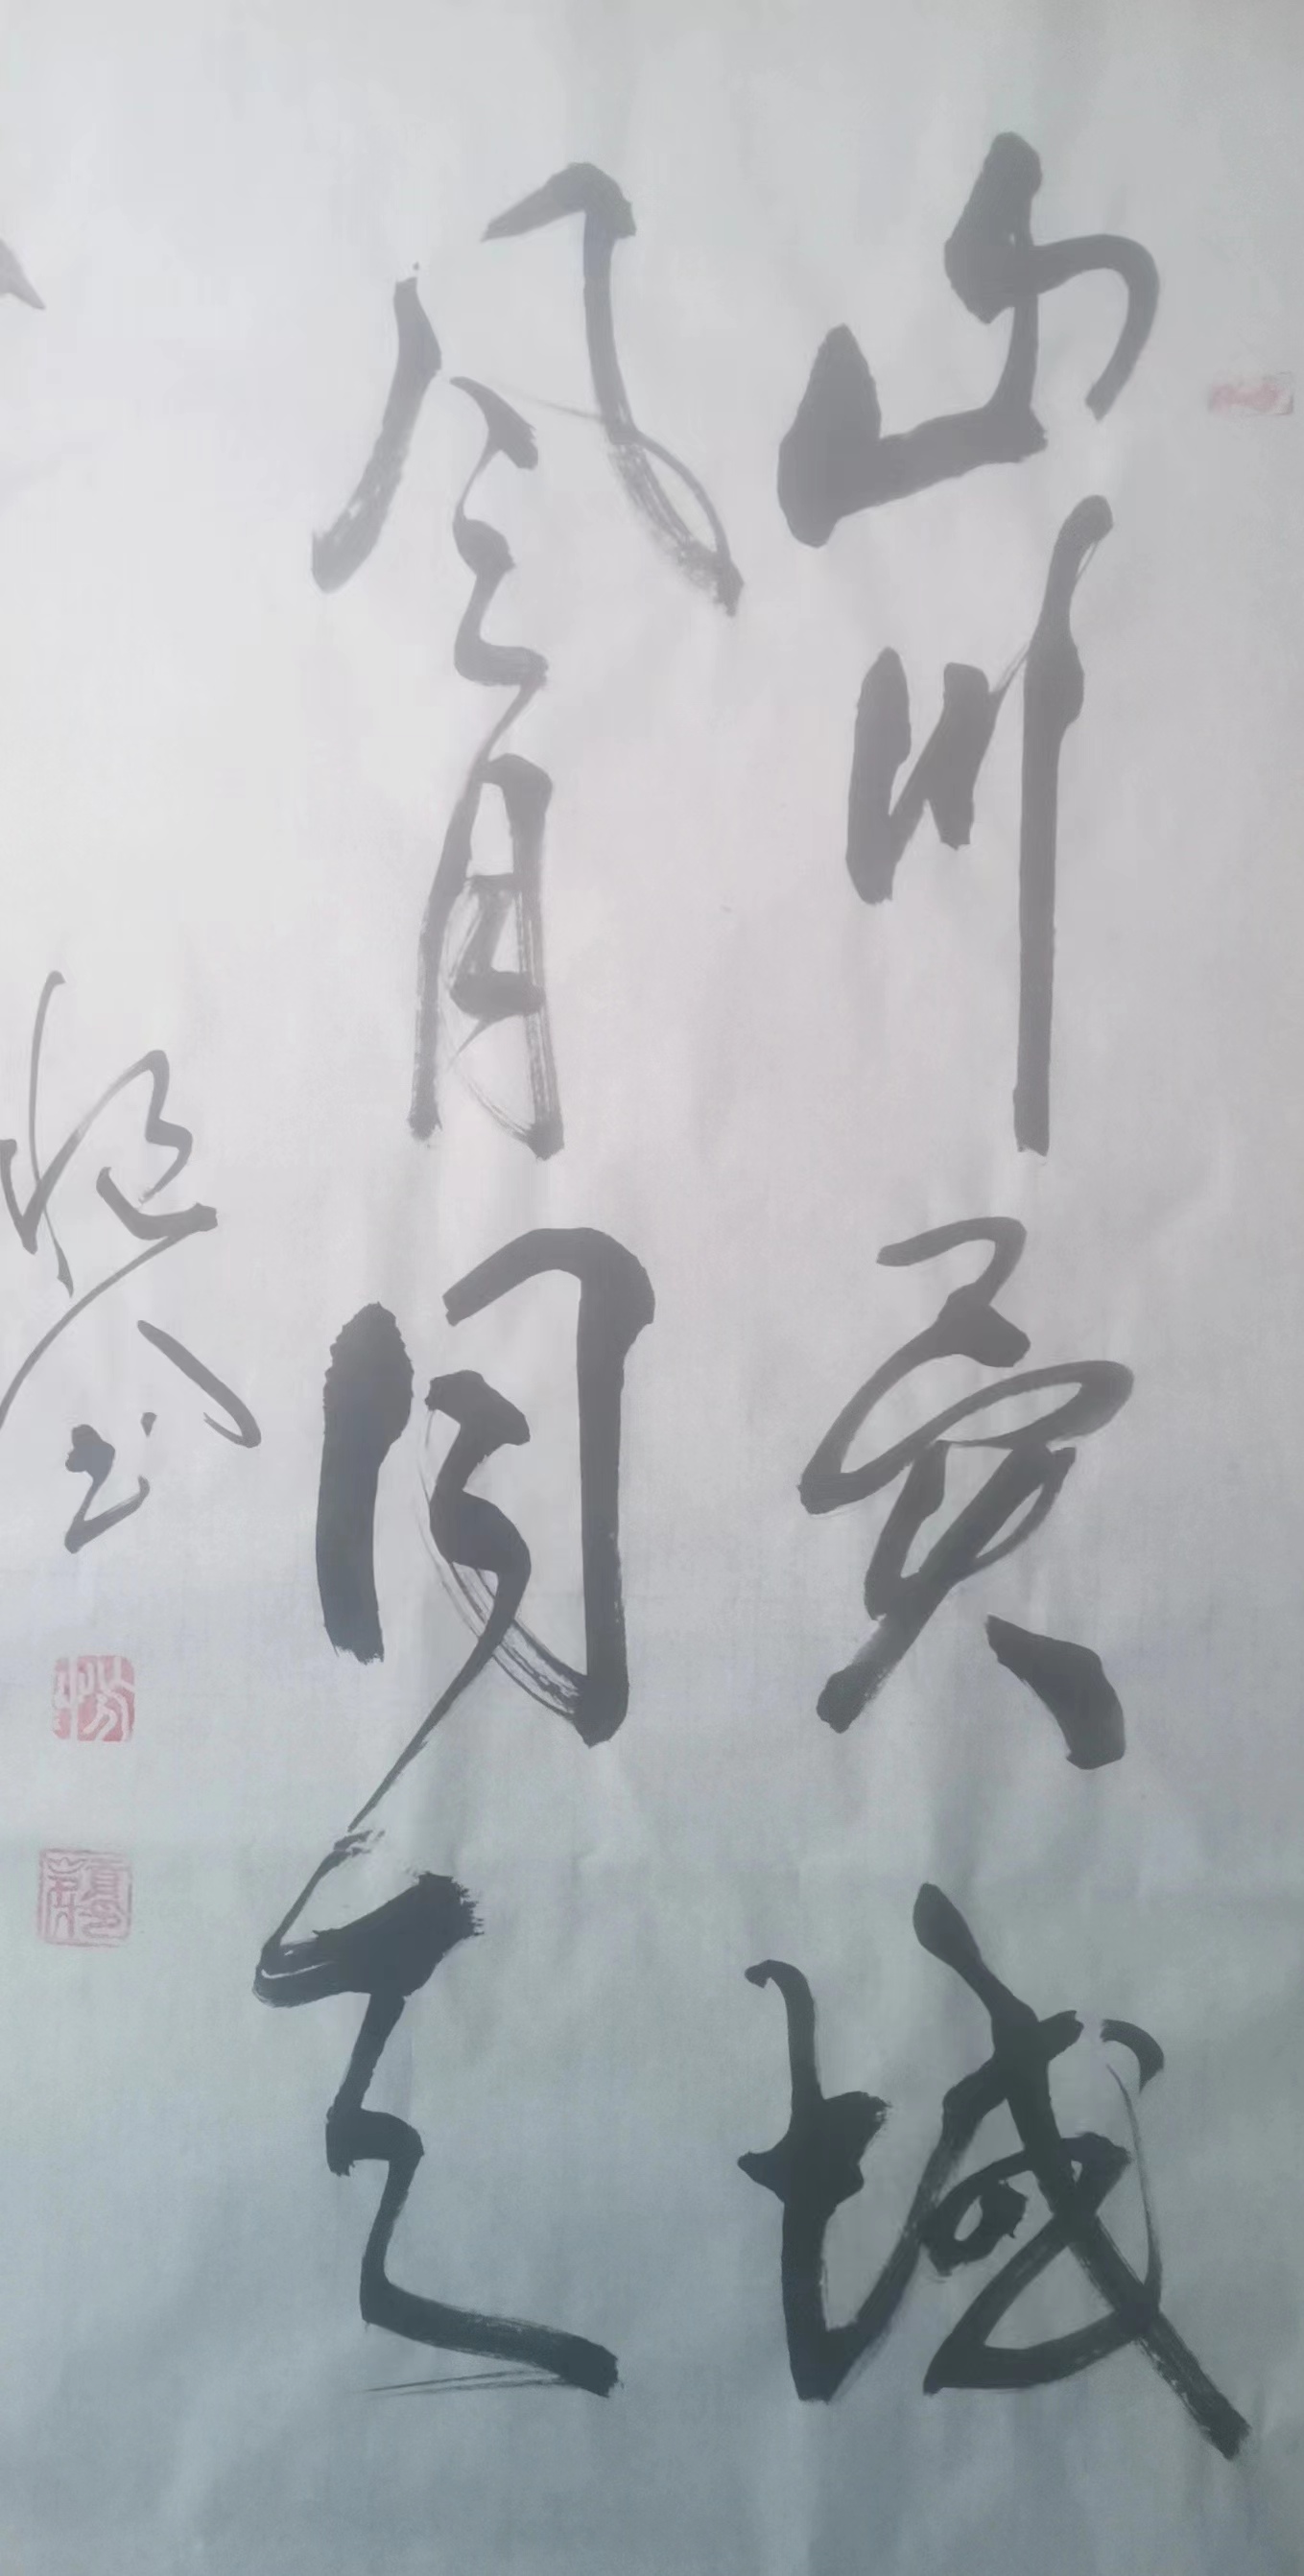 山川异域
风月同天
书